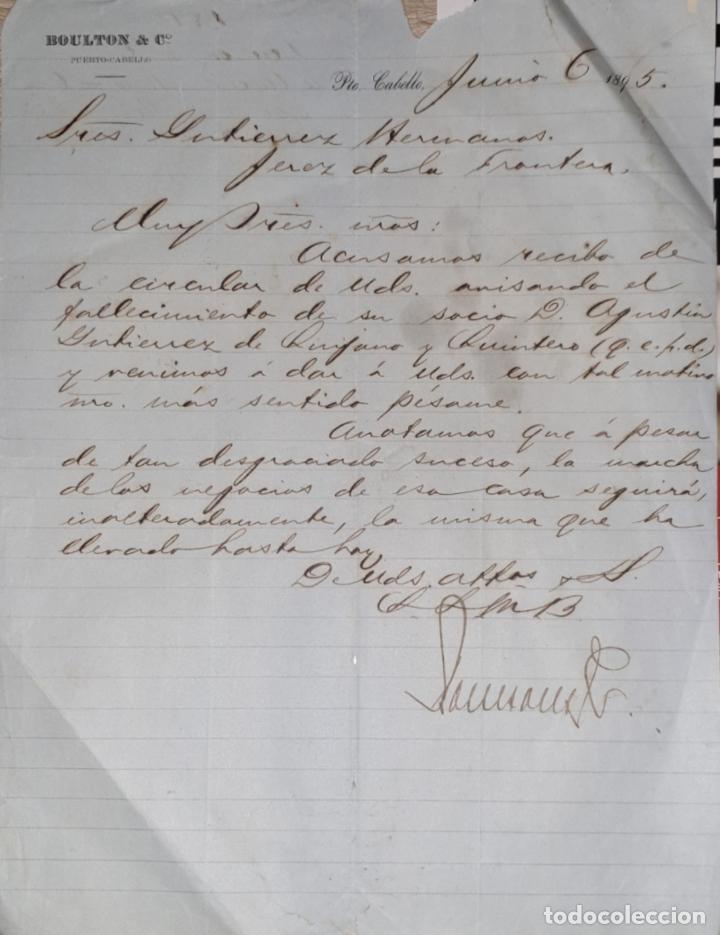 BOULTON & Cº
PUERTO-CABELLO
Pto. Cabello, Junio 6 1895.
Sres. Gutierrez Hermanos.
Jerez de la Frontera.
Muy Sres. nros:
Acusamos recibo de
la circular de Uds. avisando el
fallecimiento de su socio D. Agustin
Gutierrez de Quijano y Quintero (q.e.p.d.)
y venimos á dar á Uds. con tal motivo
nro. más sentido pésame.
Anotamos que á pesar
de tan desgraciado suceso, la marcha
de los negocios de esa casa seguirá,
inalteradamente, la misma que ha
llevado hasta hoy,
De Uds. attos y
S. S. M. B.
todocoleccion